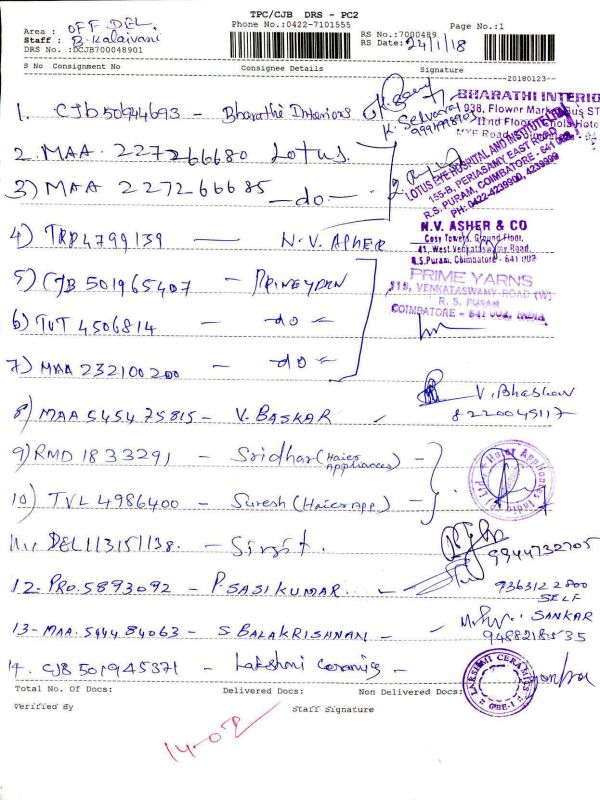 TPC/CJB DRS - PC2
Phone No.:0422-7101555
Page No.:1
Area : OFF DEL.
Staff : B. Kalaivani
DRS No. :DCJB700048901
RS No.:7000489
RS Date: 24/1/18
S No Consignment No Consignee Details Signature
20180123
1. CJB 50944693 - Bharathi Interiors
K. Selvaraj
BHARATHI INTERIO
938, Flower Mark
2. MAA 227266680 Lotus
3) MAA 227266685 -do-
LOTUS EYE HOSPITAL AND INSTITUTE LTD
155-B, PERIASAMY EAST ROAD
R.S. PURAM, COIMBATORE - 641 002
PH: 0422-4239900, 4239999
4) TRP 4799139 - N.V. ASHER
N.V. ASHER & CO
Cosy Towers, Ground Floor,
41, West Venkataswamy Road,
R.S.Puram, Coimbatore - 641 002
5) CJB 501965407 -
PRIME YARNS
119, VENKATASWAMY ROAD (W)
R. S. PURAM
COIMBATORE - 641 002, INDIA
6) TUT 4506814 - do -
7) MAA 232100200 - do -
8) MAA 545475815 - V. BASKAR
V. Bhaskar
8220045117
9) RMD 1833291 - Sridhar (Haier Appliances) -
10) TVL 4986400 - Suresh (Haier App) -
Haier Appliances
11. DEL 113151138. -
9944732705
12- PRO. 5893092 - P. SASI KUMAR
9363122800
SELF
13- MAA. 544484063 - S BALAKRISHNAN -
SANKAR
14. CJB 501945371 - Lakshmi Ceramics -
LAKSHMI CERAMICS
CBE-1
Total No. Of Docs: Delivered Docs: Non Delivered Docs:
Verified By Staff Signature
14-02